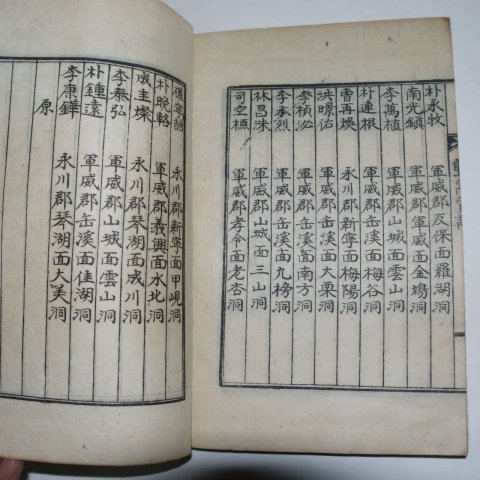 朴永牧 軍威郡友保面羅湖洞
南光鎮 軍威郡軍威面金鳩洞
李萬植 軍威郡山城面雲山洞
朴連根 軍威郡缶溪面梅谷洞
曺再煥 永川郡新寧面梅陽洞
洪暻佑 軍威郡缶溪面大栗洞
李楨泌 軍威郡缶溪面南方洞
李承烈 軍威郡缶溪面九榜洞
林昌洙 軍威郡山城面三山洞
司空 軍威郡孝令面老杏洞
永川郡新寧面甲峴洞
朴 軍威郡義興面水北洞
成圭燦 永川郡琴湖面成川洞
李泰弘 軍威郡山城面雲山洞
朴鍾遠 軍威郡缶溪面佳湖洞
李康鏵 永川郡琴湖面大美洞
原